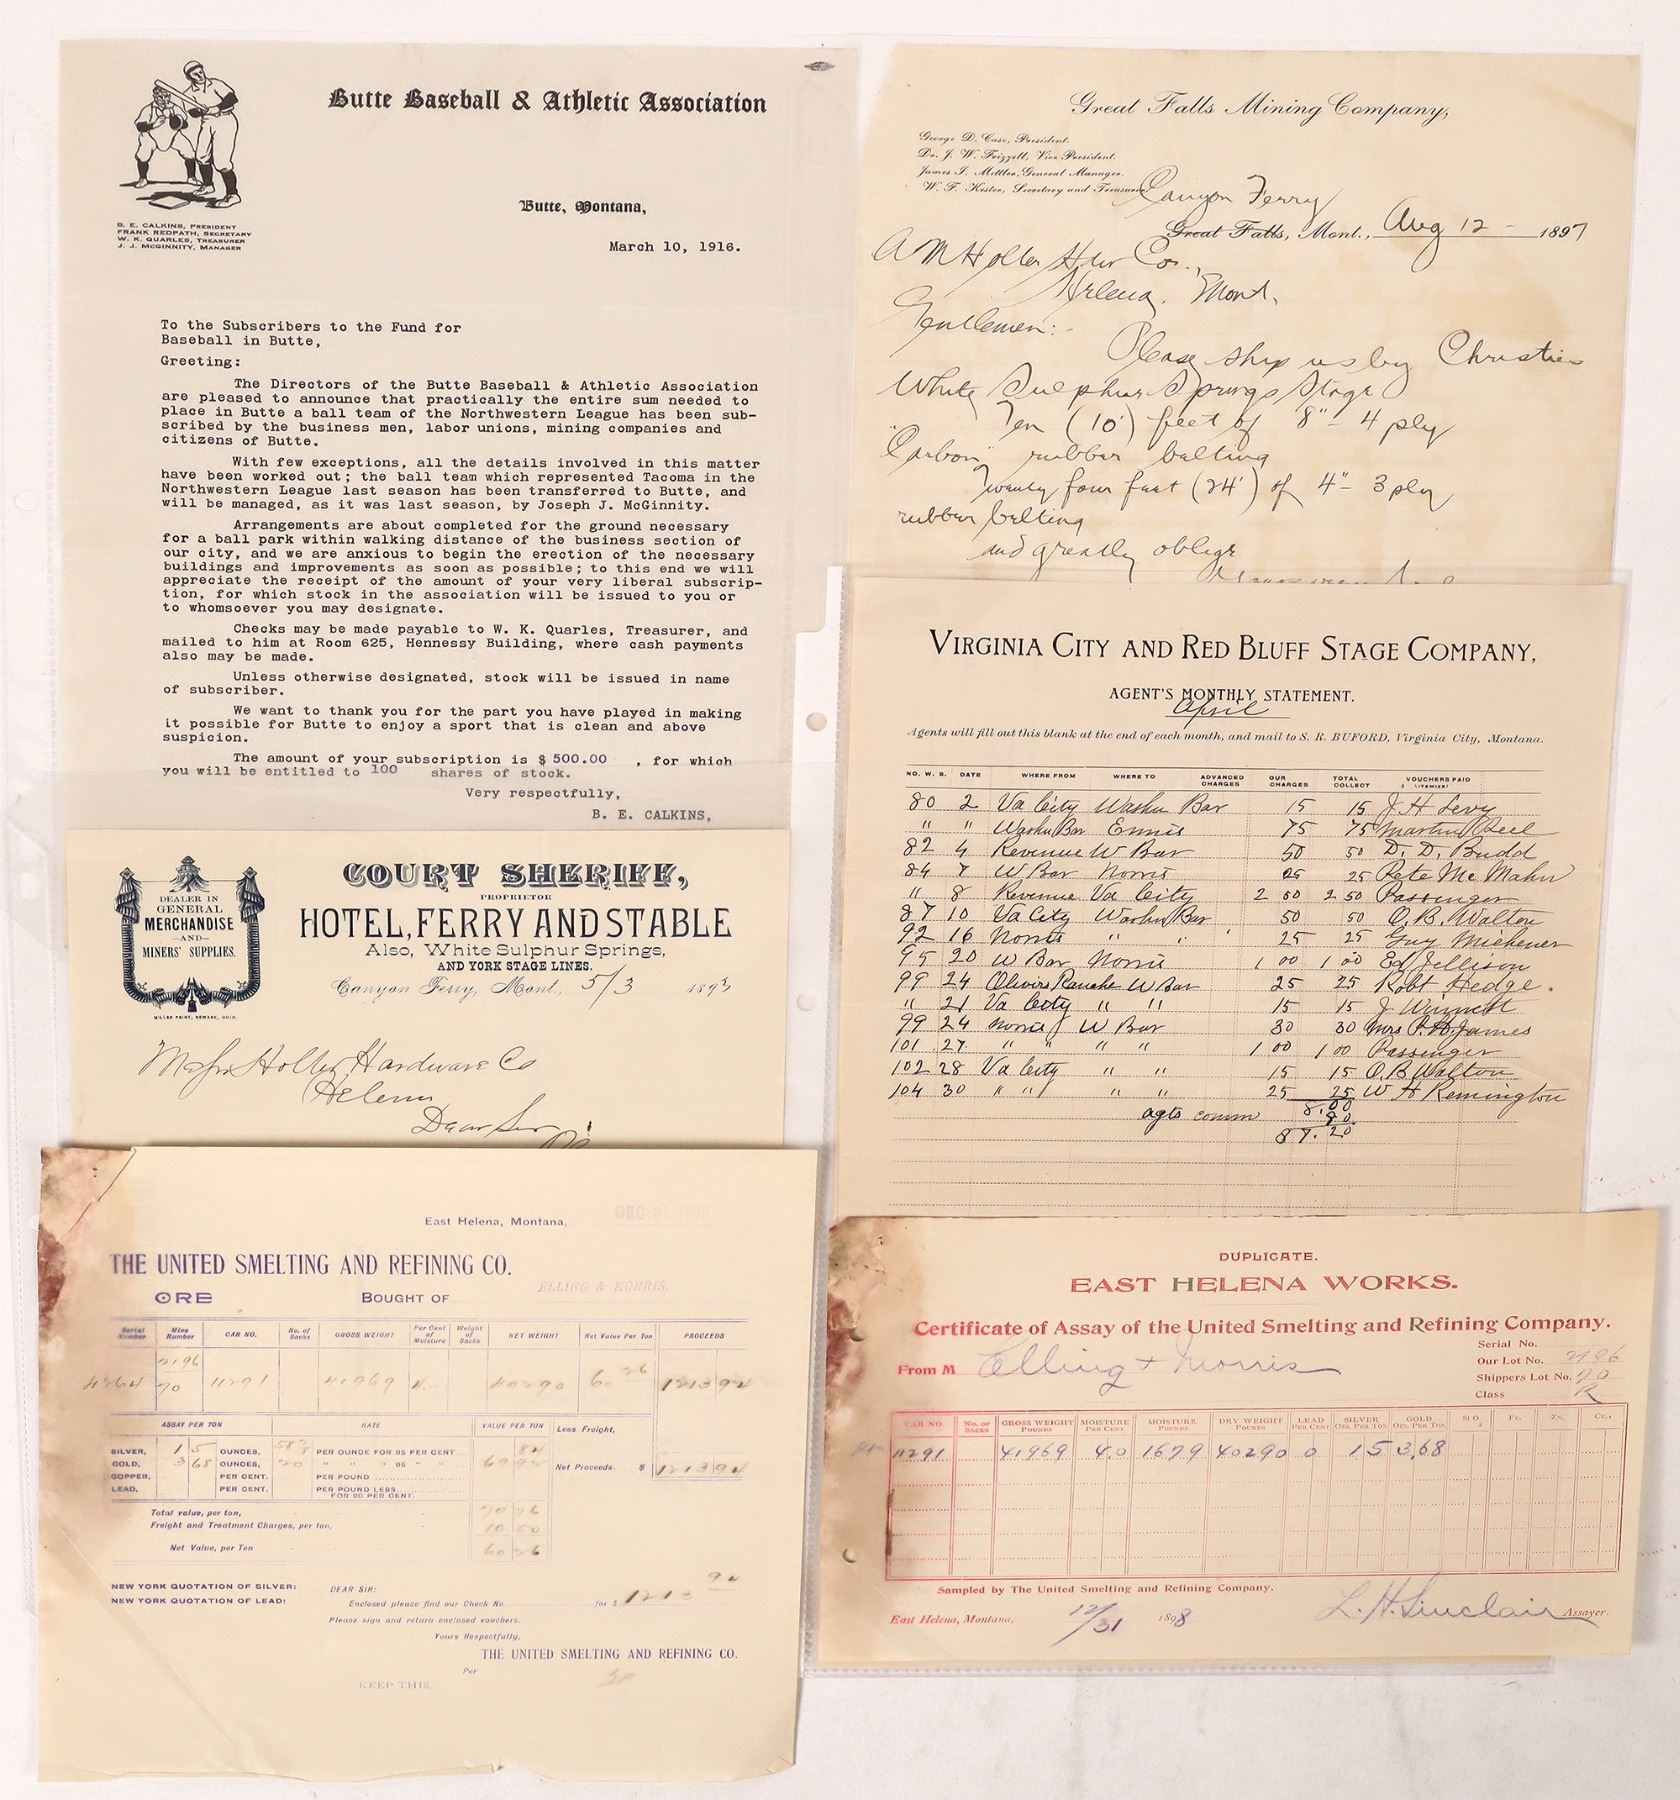 Butte Baseball & Athletic Association
Butte, Montana,
B. E. CALKINS, PRESIDENT
FRANK REDPATH, SECRETARY
W. K. QUARLES, TREASURER
J. J. McGINNITY, MANAGER
March 10, 1916.
To the Subscribers to the Fund for
Baseball in Butte,
Greeting:
The Directors of the Butte Baseball & Athletic Association
are pleased to announce that practically the entire sum needed to
place in Butte a ball team of the Northwestern League has been sub-
scribed by the business men, labor unions, mining companies and
citizens of Butte.
With few exceptions, all the details involved in this matter
have been worked out; the ball team which represented Tacoma in the
Northwestern League last season has been transferred to Butte, and
will be managed, as it was last season, by Joseph J. McGinnity.
Arrangements are about completed for the ground necessary
for a ball park within walking distance of the business section of
our city, and we are anxious to begin the erection of the necessary
buildings and improvements as soon as possible; to this end we will
appreciate the receipt of the amount of your very liberal subscrip-
tion, for which stock in the association will be issued to you or
to whomsoever you may designate.
Checks may be made payable to W. K. Quarles, Treasurer, and
mailed to him at Room 625, Hennessy Building, where cash payments
also may be made.
Unless otherwise designated, stock will be issued in name
of subscriber.
We want to thank you for the part you have played in making
it possible for Butte to enjoy a sport that is clean and above
suspicion.
The amount of your subscription is $ 500.00 , for which
you will be entitled to 100 shares of stock.
Very respectfully,
B. E. CALKINS,
Great Falls Mining Company,
George D. Case, President.
Dr. J. W. Frizzell, Vice President.
James I. Mettler, General Manager.
W. F. Kester, Secretary and Treasurer
Canyon Ferry
Great Falls, Mont., Aug 12 - 1897
A M Holter Hdw Co.,
Helena, Mont.
Gentlemen:-
Please ship us by Christie
White Sulphur Springs Stage
Ten (10') feet of 8" - 4 ply
"Carbon" rubber belting
Twenty four feet (24') of 4" - 3 ply
rubber belting
and greatly oblige
VIRGINIA CITY AND RED BLUFF STAGE COMPANY,
AGENT'S MONTHLY STATEMENT.
April
Agents will fill out this blank at the end of each month, and mail to S. R. BUFORD, Virginia City, Montana.
NO. W. B. DATE WHERE FROM WHERE TO ADVANCED CHARGES OUR CHARGES TOTAL COLLECT VOUCHERS PAID (ITEMIZE)
80 2 Va City Washn Bar 15 15 J H Levy
" " Washn Bar Ennis 75 75 Martin Peel
82 4 Revenue W Bar 50 50 D. D. Budd
84 7 W Bar Norris 25 25 Pete Mc Mahn
" 8 Revenue Va City 2 50 2 50 Passenger
87 10 Va City Washn Bar 50 50 O. B. Walton
92 16 Norris " " 25 25 Guy Michener
95 20 W Bar Norris 1 00 1 00 Ed Jellison
99 24 Olivers Ranche W Bar 25 25 Robt Hedge
" 21 Va City " " 15 15 J
99 24 Norris W Bar 30 30 Mrs P. H. James
101 27 " " " " 1 00 1 00 Passenger
102 28 Va City " " 15 15 O. B Walton
104 30 " " " " 25 25 W H Remington
8.00
agts comm 80
$7.20
DEALER IN
GENERAL
MERCHANDISE
—AND—
MINERS' SUPPLIES.
COURT SHERIFF,
PROPRIETOR
HOTEL, FERRY AND STABLE
Also, White Sulphur Springs,
AND YORK STAGE LINES.
Canyon Ferry, Mont. 5/3 1893
Messrs Holter Hardware Co
Helena
Dear Sir
East Helena, Montana, DEC 31 1898
THE UNITED SMELTING AND REFINING CO.
ORE BOUGHT OF ELLING & MORRIS.
Serial Number Mine Number CAR NO. No. of Sacks GROSS WEIGHT Per Cent of Moisture Weight of Sacks NET WEIGHT Net Value Per Ton PROCEEDS
2196
4264 70 11291 41969 4.- 40290 60 26 1213 94
ASSAY PER TON RATE VALUE PER TON Less Freight,
SILVER, 1 5 OUNCES, PER OUNCE FOR 95 PER CENT 84
GOLD, 3 68 OUNCES, 20 " " " 95 " " 69 92 Net Proceeds. $ 1213 94
COPPER, PER CENT. PER POUND
LEAD, PER CENT. PER POUND LESS
FOR 90 PER CENT.
Total value, per ton, 70 76
Freight and Treatment Charges, per ton, 10 50
Net Value, per Ton 60 26
NEW YORK QUOTATION OF SILVER:
NEW YORK QUOTATION OF LEAD:
DEAR SIR:
Enclosed please find our Check No. for $ 1213 94
Please sign and return enclosed vouchers.
Yours Respectfully,
THE UNITED SMELTING AND REFINING CO.
Per
KEEP THIS.
DUPLICATE.
EAST HELENA WORKS.
Certificate of Assay of the United Smelting and Refining Company.
From M Elling & Morris
Serial No.
Our Lot No. 2196
Shippers Lot No. 70
Class R
CAR NO. No. of Sacks GROSS WEIGHT POUNDS MOISTURE PER CENT MOISTURE POUNDS DRY WEIGHT POUNDS LEAD PER CENT SILVER OZS. PER TON GOLD OZS. PER TON SI O2 FE. ZN. CU.
11291 41969 4.0 1679 40290 0 1.5 3.68
Sampled by The United Smelting and Refining Company.
East Helena, Montana, 12/31 1898 L. H. Sinclair Assayer.